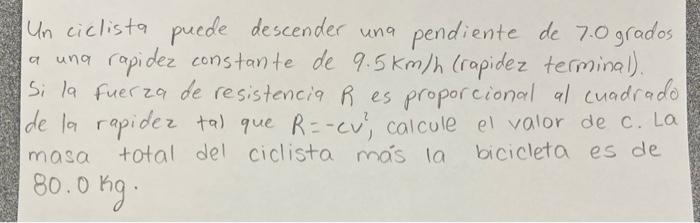 Un ciclista puede descender una pendiente de 7.0 grados
a una rapidez constante de 9.5 km/h (rapidez terminal).
Si la fuerza de resistencia R es proporcional al cuadrado
de la rapidez tal que R=-cv², calcule el valor de c. La
masa total del ciclista más la bicicleta es de
80.0 Kg.